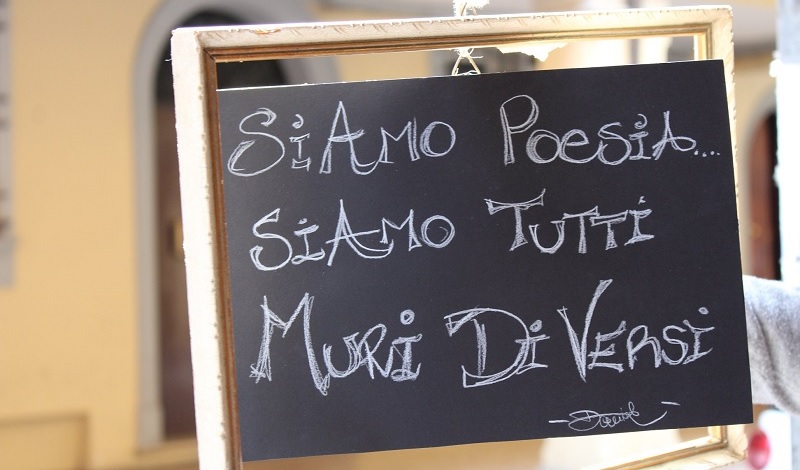 SiAMO POESiA....
SiAMO TUTTi
MURi Di VERSi